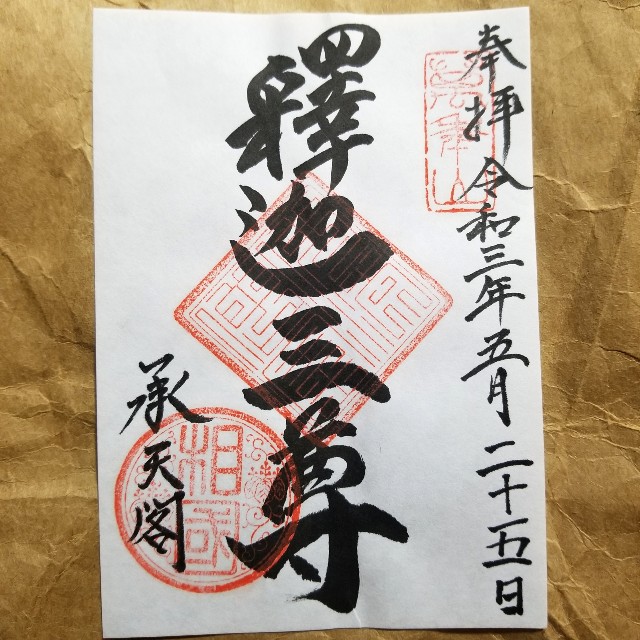 奉拝 令和三年五月二十五日
萬年山
釋迦三尊
承天閣
相國